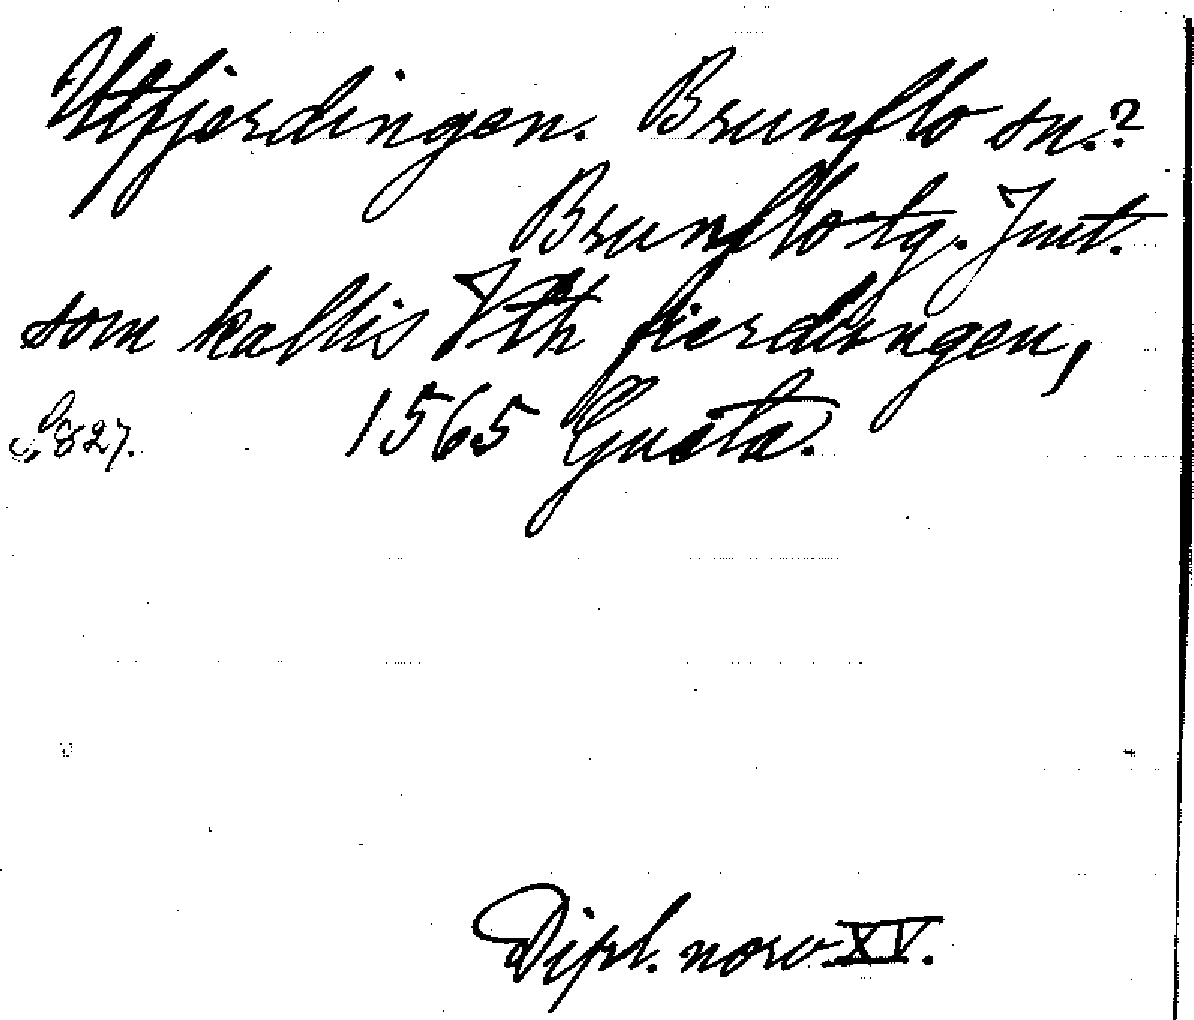 Utfjerdingen. Brunflo sn.?
Brunflo tg. Jmt.
som kallis Vth fierdingen,
S. 827. 1565 Gusta.
Dipl. norv. XV.